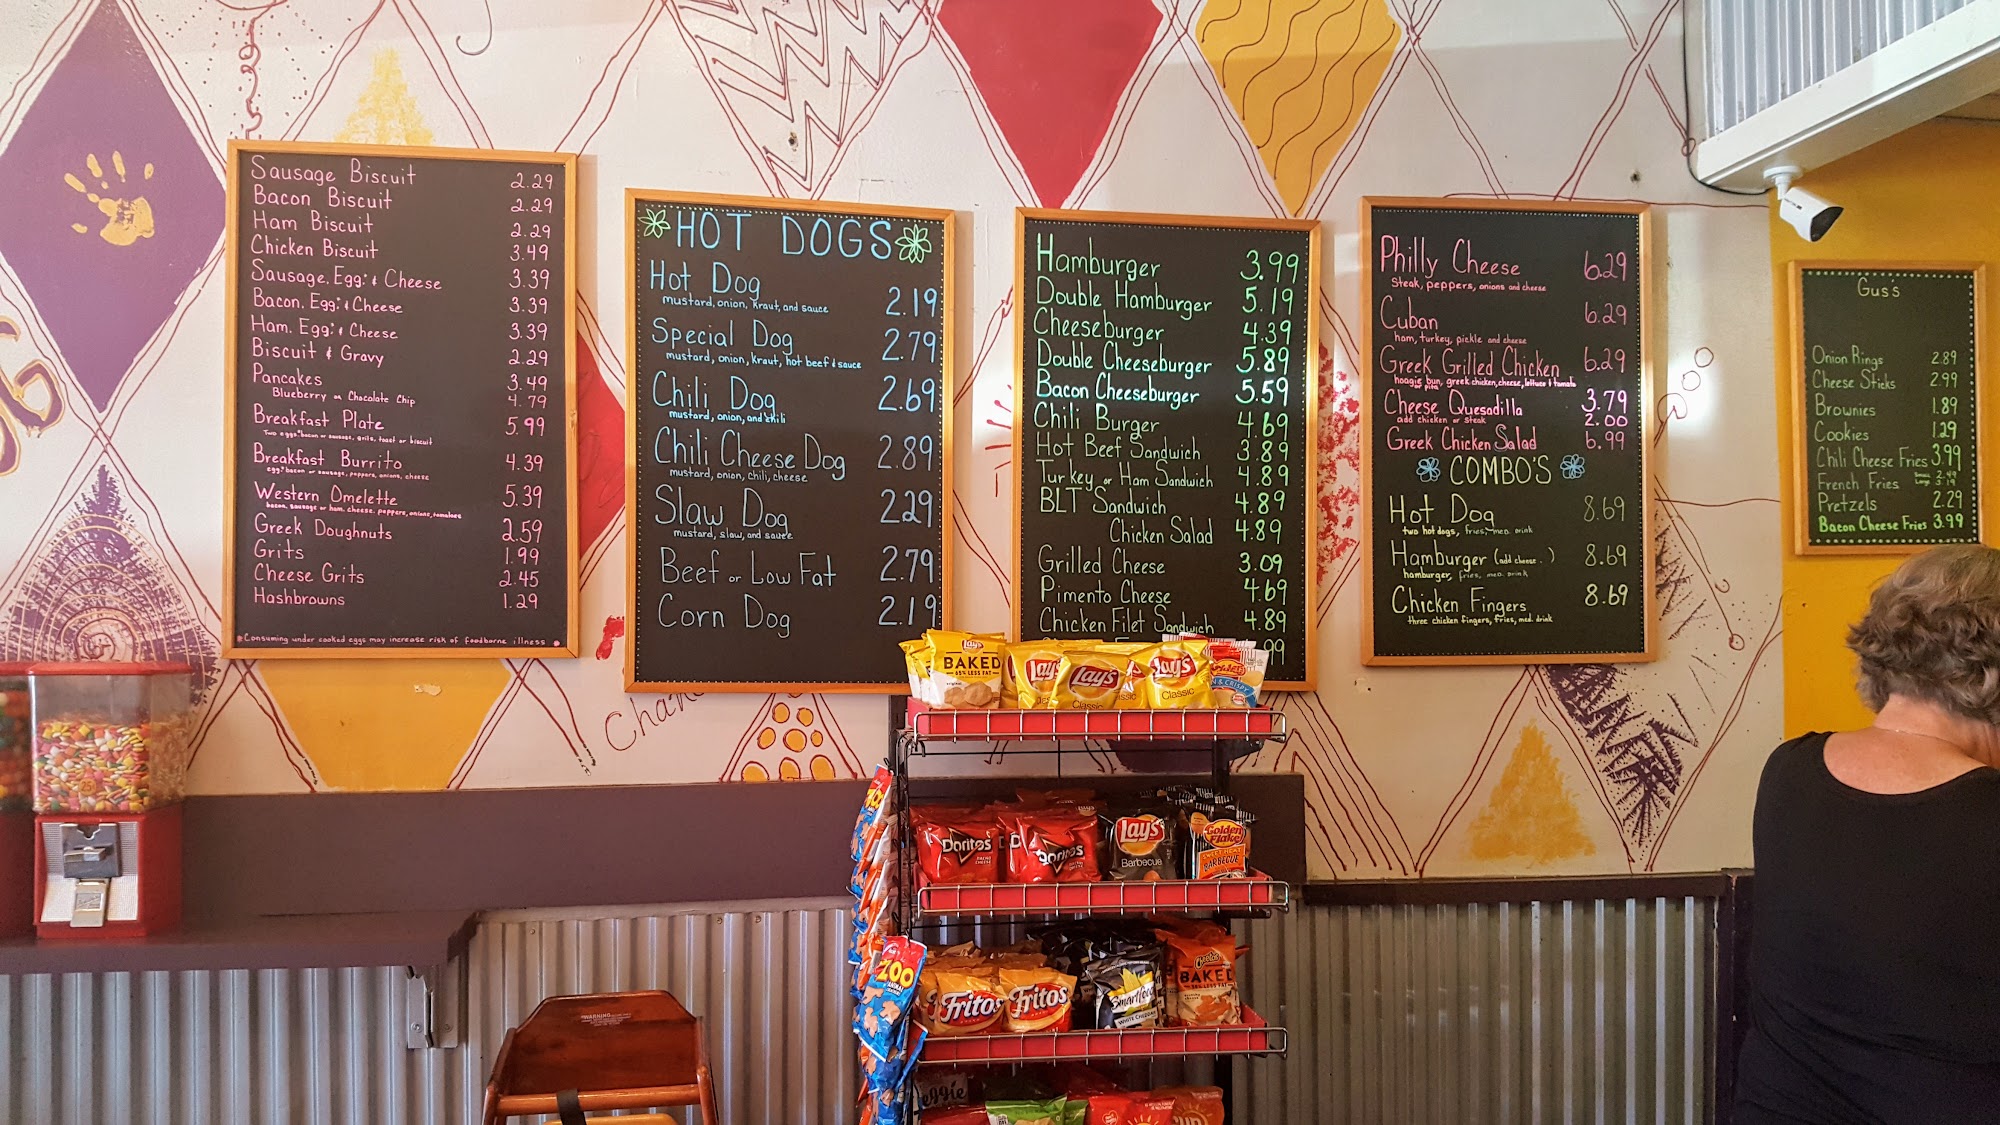 Sausage Biscuit 2.29
Bacon Biscuit 2.29
Ham Biscuit 2.29
Chicken Biscuit 3.49
Sausage, Egg, & Cheese 3.39
Bacon, Egg, & Cheese 3.39
Ham, Egg, & Cheese 3.39
Biscuit & Gravy 2.29
Pancakes 3.49
Blueberry or Chocolate Chip 4.79
Breakfast Plate 5.99
Two eggs, bacon or sausage, grits, toast or biscuit
Breakfast Burrito 4.39
egg, bacon or sausage, peppers, onions, cheese
Western Omelette 5.39
bacon, sausage or ham, cheese, peppers, onions, tomatoes
Greek Doughnuts 2.59
Grits 1.99
Cheese Grits 2.45
Hashbrowns 1.29
Consuming under cooked eggs may increase risk of foodborne illness
HOT DOGS
Hot Dog 2.19
mustard, onion, kraut, and sauce
Special Dog 2.79
mustard, onion, kraut, hot beef & sauce
Chili Dog 2.69
mustard, onion, and chili
Chili Cheese Dog 2.89
mustard, onion, chili, cheese
Slaw Dog 2.29
mustard, slaw, and sauce
Beef or Low Fat 2.79
Corn Dog 2.19
Hamburger 3.99
Double Hamburger 5.19
Cheeseburger 4.39
Double Cheeseburger 5.89
Bacon Cheeseburger 5.59
Chili Burger 4.69
Hot Beef Sandwich 3.89
Turkey or Ham Sandwich 4.89
BLT Sandwich 4.89
Chicken Salad 4.89
Grilled Cheese 3.09
Pimento Cheese 4.69
Chicken Filet Sandwich 4.89
99
Philly Cheese 6.29
steak, peppers, onions and cheese
Cuban 6.29
ham, turkey, pickle and cheese
Greek Grilled Chicken 6.29
hoagie bun, greek chicken, cheese, lettuce & tomato
or pita
Cheese Quesadilla 3.79
add chicken or steak 2.00
Greek Chicken Salad 6.99
COMBO'S
Hot Dog 8.69
two hot dogs, fries, med. drink
Hamburger (add cheese . ) 8.69
hamburger, fries, med. drink
Chicken Fingers 8.69
three chicken fingers, fries, med. drink
Gus's
Onion Rings 2.89
Cheese Sticks 2.99
Brownies 1.89
Cookies 1.29
Chili Cheese Fries 3.99
French Fries
Pretzels 2.29
Bacon Cheese Fries 3.99
Lay's
BAKED
65% LESS FAT
Lay's
Lay's
Classic
Lay's
Classic
Doritos
NACHO CHEESE
Doritos
Lay's
Barbecue
Golden Flake
BARBECUE
ZOO
Fritos
Fritos
Smartfood
WHITE CHEDDAR
BAKED
WARNING